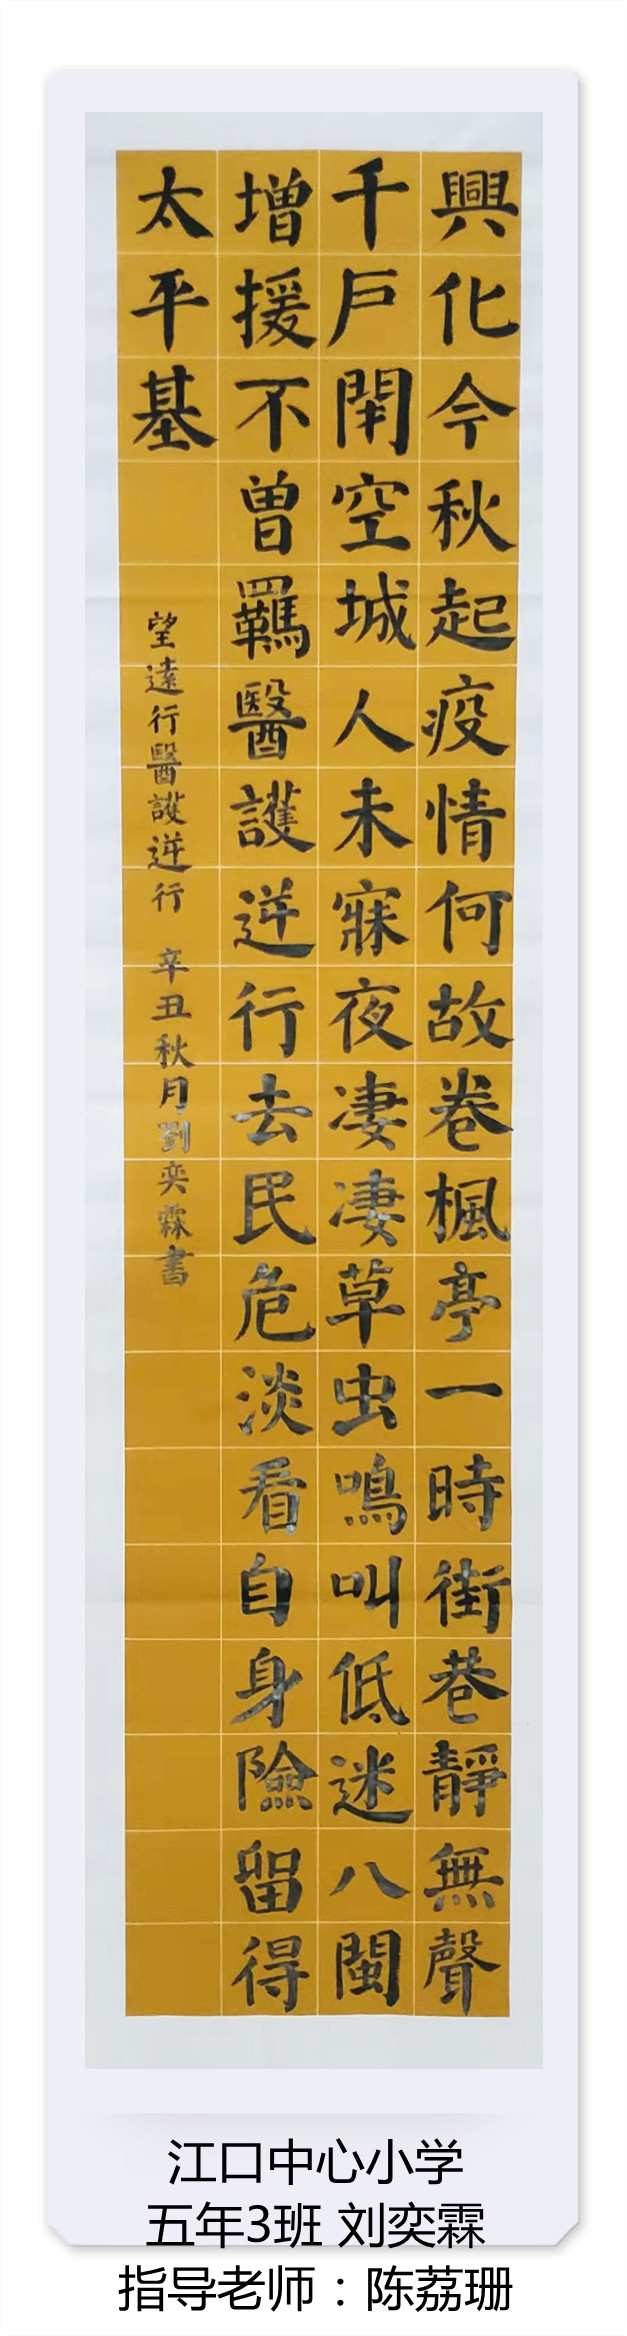 興化今秋起疫情何故卷楓亭一時街巷靜無聲
千戶閇空城人未寐夜凄凄草虫鳴叫低迷八閩
增援不曾羈醫護逆行去民危淡看自身險留得
太平基
望遠行醫護逆行 辛丑秋月劉奕霖書
江口中心小学
五年3班 刘奕霖
指导老师：陈荔珊